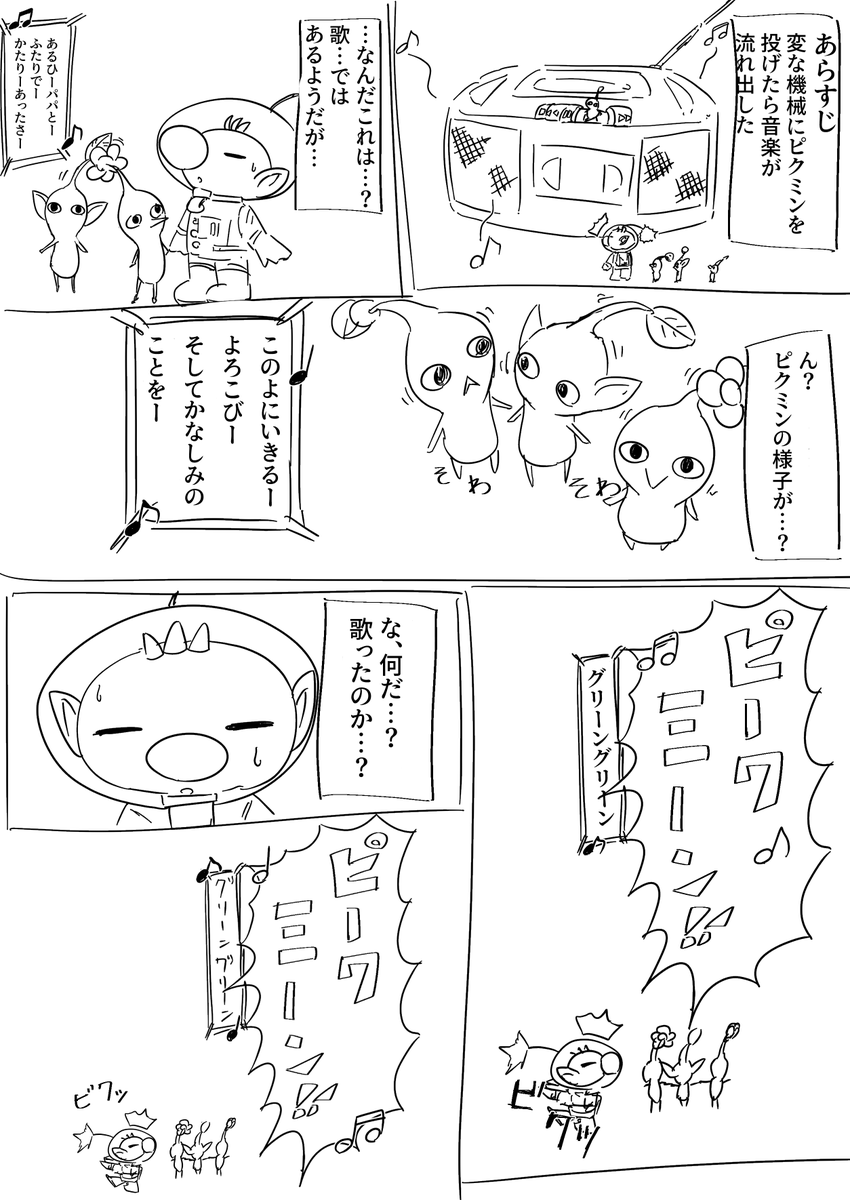 あらすじ
変な機械にピクミンを
投げたら音楽が
流れ出した
…なんだこれは…？
歌…では
あるようだが…
あるひーパパとー
ふたりでー
かたりーあったさー
ん？
ピクミンの様子が…？
そわ
そわ
このよにいきるー
よろこびー
そしてかなしみの
ことをー
ピークミーン!!
グリーングリーン
ビクッ
な、何だ…？
歌ったのか…？
ピークミーン!!
グリーングリーン
ビクッ